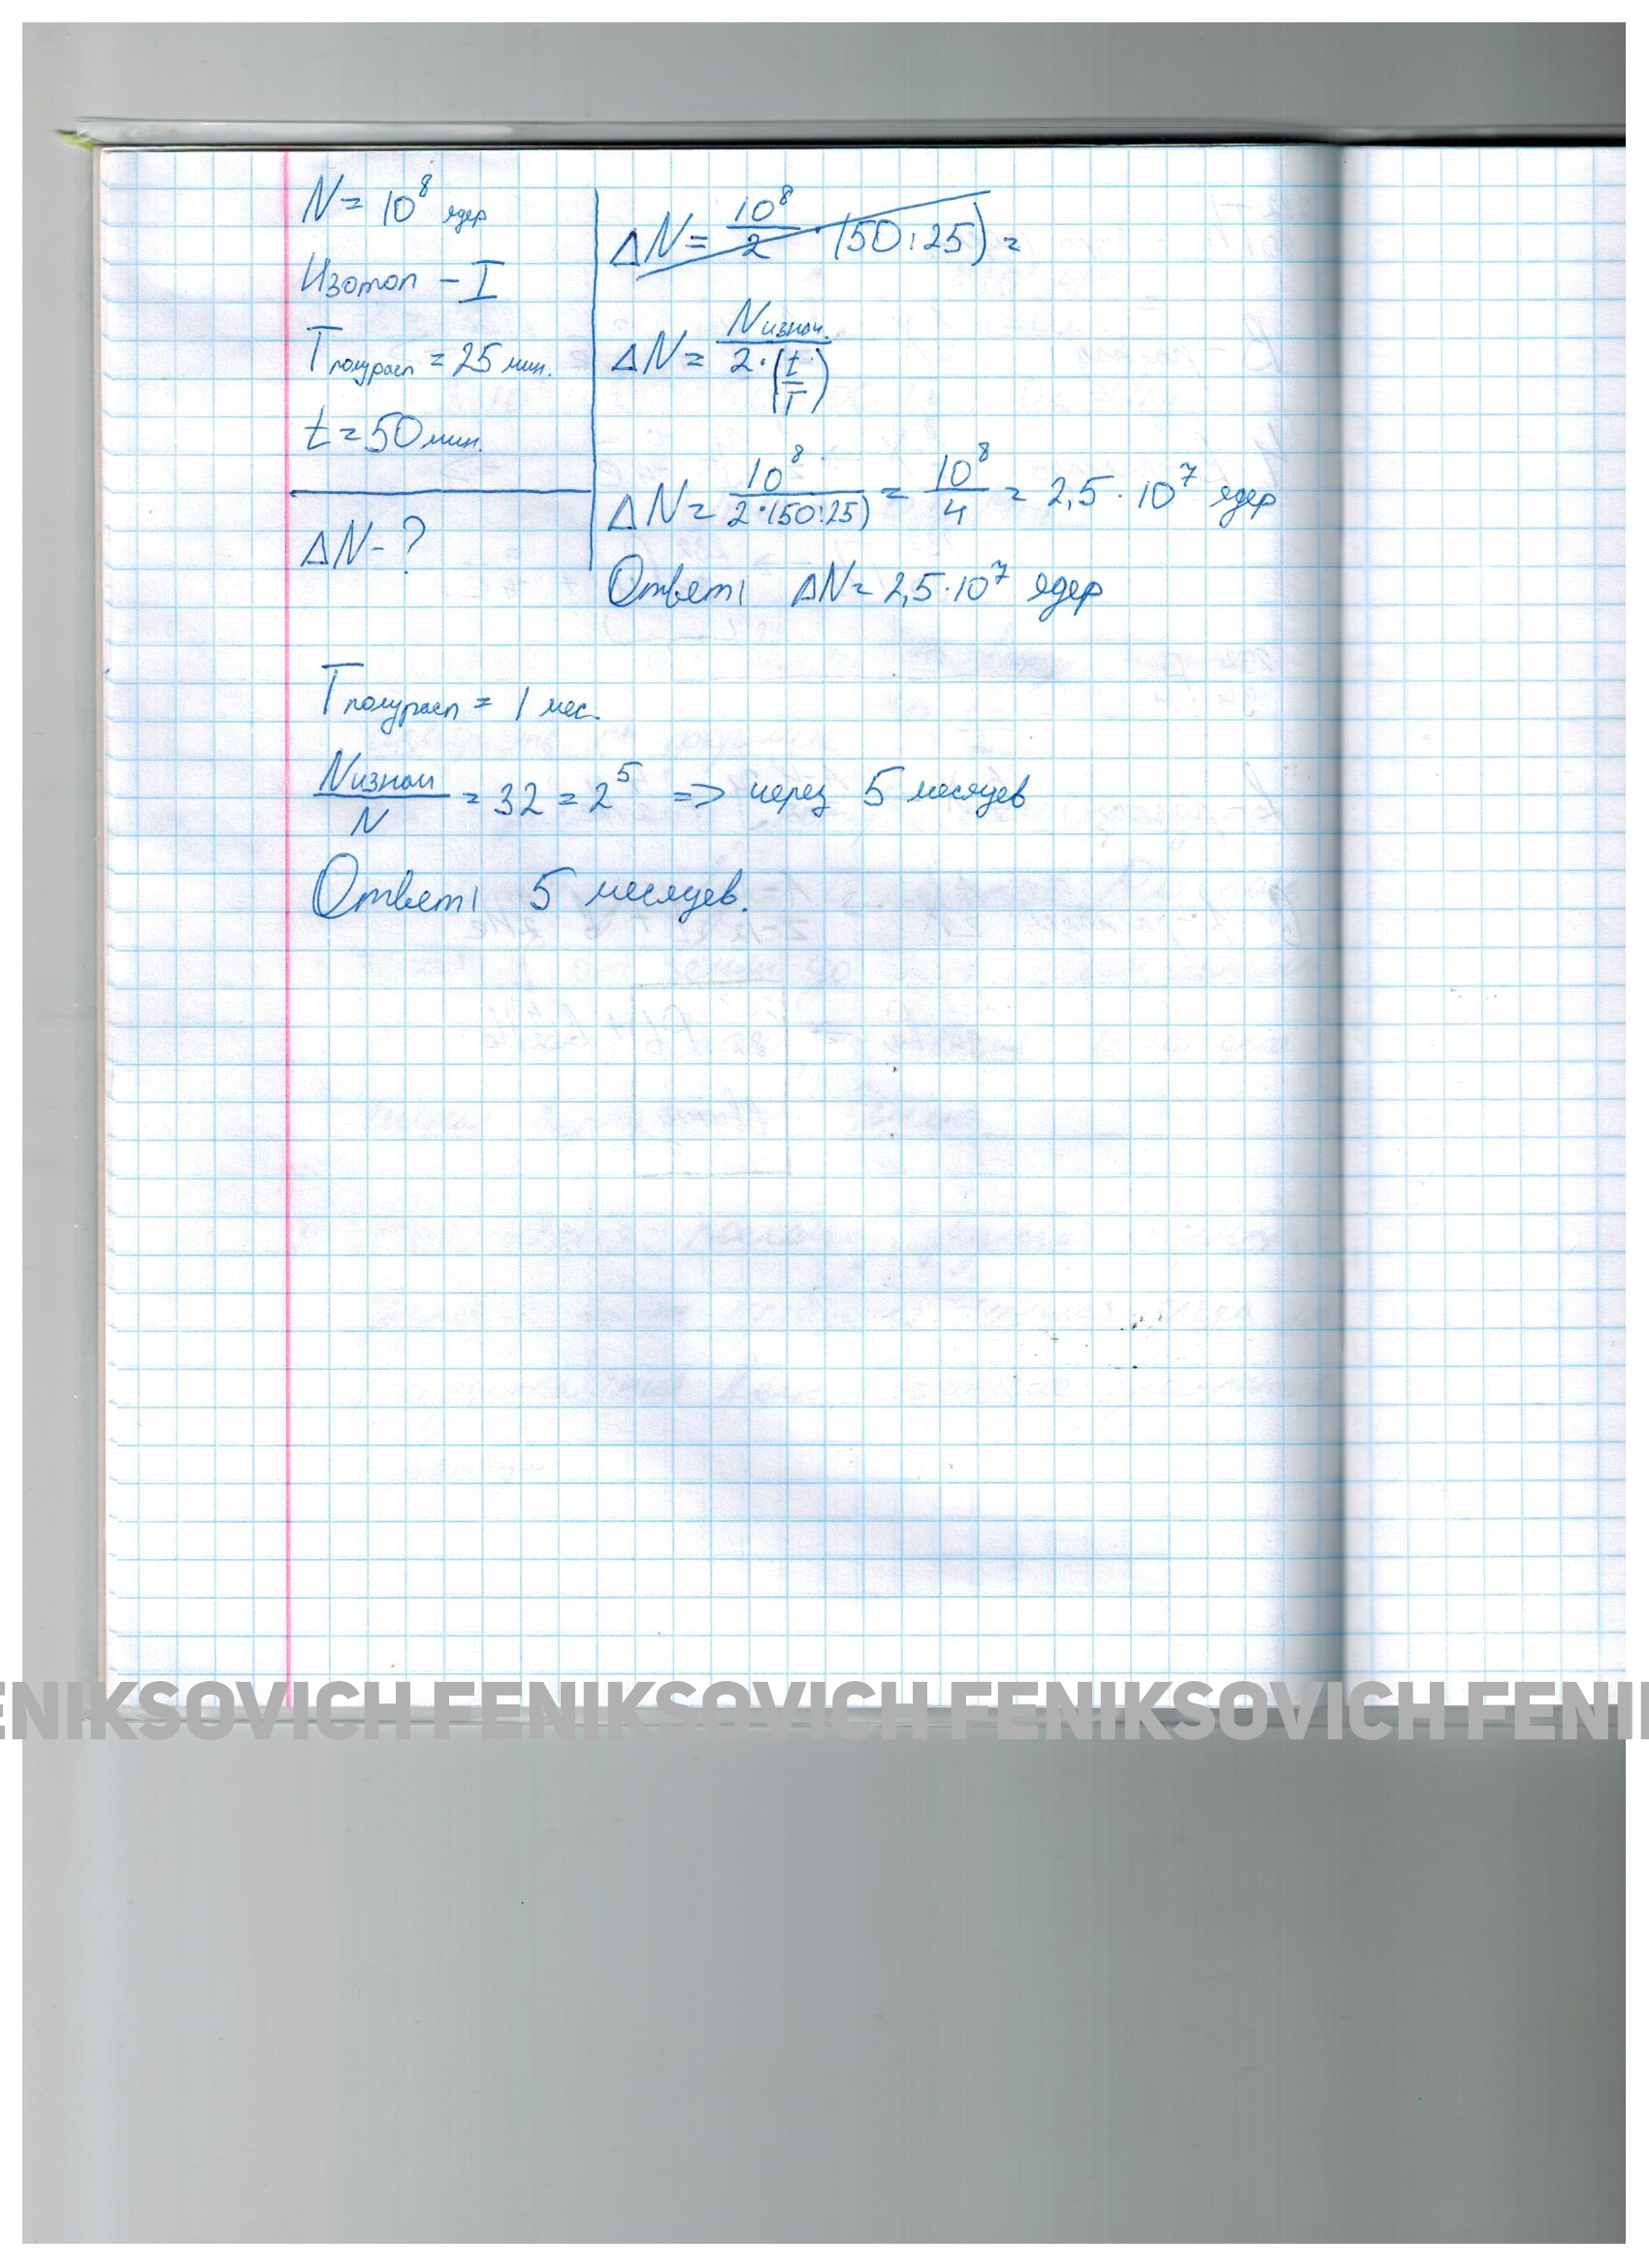 N = 10⁸ ядер
Изотоп - I
Tполурасп = 25 мин.
t = 50 мин.
ΔN - ?
ΔN = 10⁸/2 · (50:25) =
ΔN = Nизнач./2·(t/T)
ΔN = 10⁸/2·(50:25) = 10⁸/4 = 2,5 · 10⁷ ядер
Ответ: ΔN = 2,5·10⁷ ядер
Tполурасп = 1 мес.
Nизнач/N = 32 = 2⁵ => через 5 месяцев
Ответ: 5 месяцев.
ENIKSOVICH FENIKSOVICH FENIKSOVICH FENI